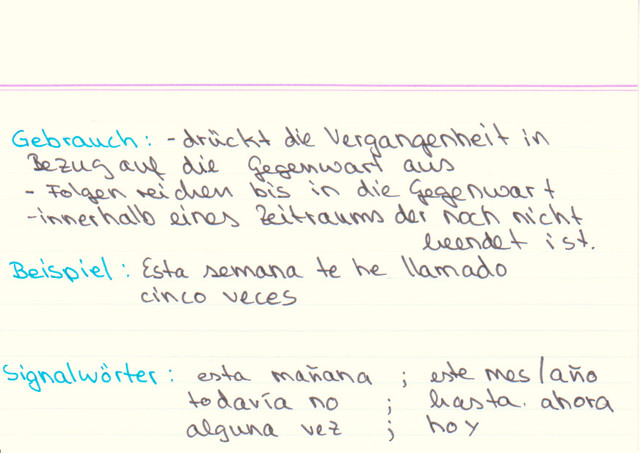 Gebrauch: - drückt die Vergangenheit in
Bezug auf die Gegenwart aus
- Folgen reichen bis in die Gegenwart
- innerhalb eines Zeitraums der noch nicht
beendet ist.
Beispiel: Esta semana te he llamado
cinco veces
Signalwörter: esta mañana ; este mes/año
todavía no ; hasta. ahora
alguna vez ; hoy